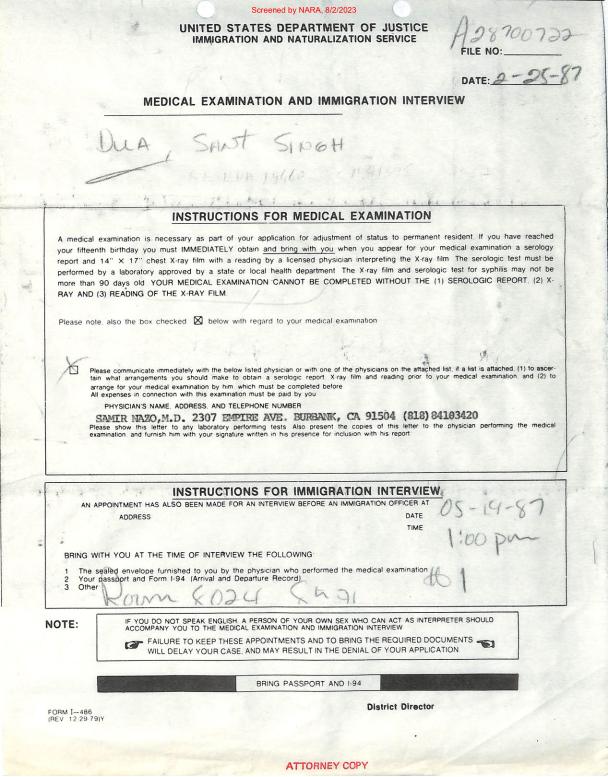 Screened by NARA, 8/2/2023
UNITED STATES DEPARTMENT OF JUSTICE
IMMIGRATION AND NATURALIZATION SERVICE
A28700722
FILE NO:
DATE: 2-25-87
MEDICAL EXAMINATION AND IMMIGRATION INTERVIEW
DUA, SANT SINGH
INSTRUCTIONS FOR MEDICAL EXAMINATION
A medical examination is necessary as part of your application for adjustment of status to permanent resident. If you have reached
your fifteenth birthday you must IMMEDIATELY obtain and bring with you when you appear for your medical examination a serology
report and 14" X 17" chest X-ray film with a reading by a licensed physician interpreting the X-ray film. The serologic test must be
performed by a laboratory approved by a state or local health department. The X-ray film and serologic test for syphilis may not be
more than 90 days old. YOUR MEDICAL EXAMINATION CANNOT BE COMPLETED WITHOUT THE (1) SEROLOGIC REPORT, (2) X-
RAY AND (3) READING OF THE X-RAY FILM.
Please note, also the box checked ☒ below with regard to your medical examination
Please communicate immediately with the below listed physician or with one of the physicians on the attached list, if a list is attached, (1) to ascer-
tain what arrangements you should make to obtain a serologic report, X-ray film and reading prior to your medical examination, and (2) to
arrange for your medical examination by him, which must be completed before
All expenses in connection with this examination must be paid by you
PHYSICIAN'S NAME, ADDRESS, AND TELEPHONE NUMBER
SAMIR NAZO,M.D. 2307 EMPIRE AVE. BURBANK, CA 91504 (818)84103420
Please show this letter to any laboratory performing tests. Also present the copies of this letter to the physician performing the medical
examination, and furnish him with your signature written in his presence for inclusion with his report.
INSTRUCTIONS FOR IMMIGRATION INTERVIEW
AN APPOINTMENT HAS ALSO BEEN MADE FOR AN INTERVIEW BEFORE AN IMMIGRATION OFFICER AT
ADDRESS DATE 05-14-87
TIME 1:00 pm
BRING WITH YOU AT THE TIME OF INTERVIEW THE FOLLOWING
1 The sealed envelope furnished to you by the physician who performed the medical examination
2 Your passport and Form I-94 (Arrival and Departure Record)
3 Other
Room 8024
#1
NOTE: IF YOU DO NOT SPEAK ENGLISH, A PERSON OF YOUR OWN SEX WHO CAN ACT AS INTERPRETER SHOULD
ACCOMPANY YOU TO THE MEDICAL EXAMINATION AND IMMIGRATION INTERVIEW
FAILURE TO KEEP THESE APPOINTMENTS AND TO BRING THE REQUIRED DOCUMENTS
WILL DELAY YOUR CASE, AND MAY RESULT IN THE DENIAL OF YOUR APPLICATION
BRING PASSPORT AND I-94
FORM I—486
(REV 12 29 79)Y
District Director
ATTORNEY COPY